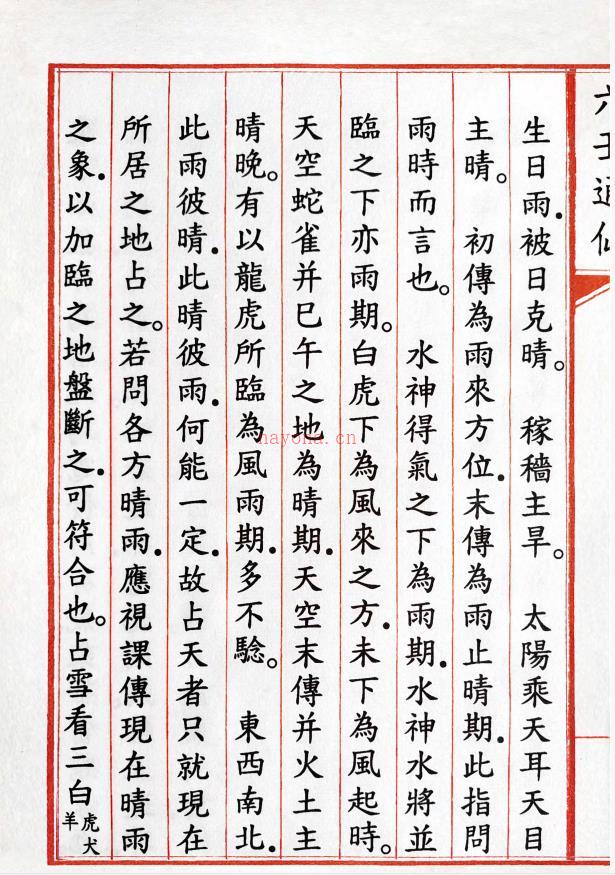 六壬通仙
生日雨．被日克晴。　稼穡主旱。　太陽乘天耳天目
主晴。　初傳為雨來方位．末傳為雨止晴期．此指問
雨時而言也。　水神得氣之下為雨期．水神水將並
臨之下亦雨期。白虎下為風來之方．未下為風起時。
天空蛇雀并巳午之地為晴期．天空末傳并火土主
晴晚。有以龍虎所臨為風雨期．多不驗。　東西南北．
此雨彼晴．此晴彼雨．何能一定．故占天者只就現在
所居之地占之。若問各方晴雨．應視課傳現在晴雨
之象．以加臨之地盤斷之．可符合也。占雪看三白虎犬羊
hayona.cn